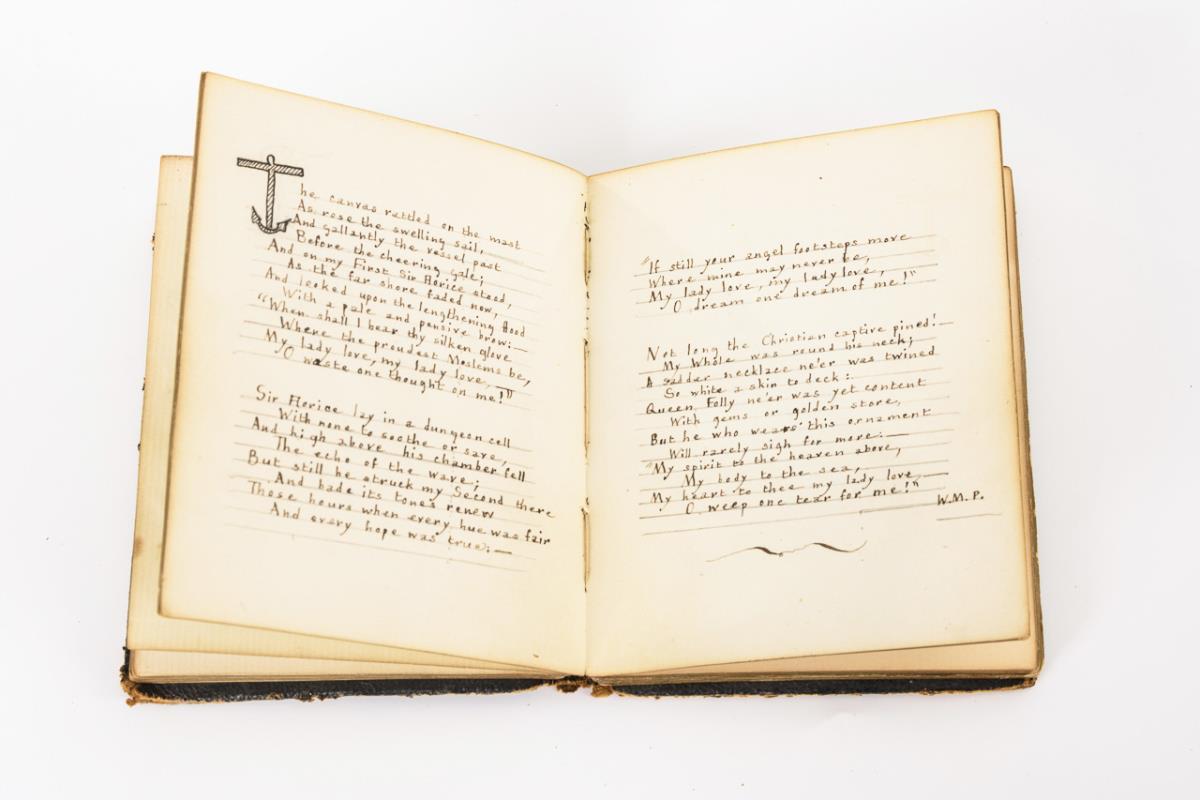 The canvas rattled on the mast
As rose the swelling sail,
And gallantly the vessel past
Before the cheering gale;
And on my First Sir Florice stood,
As the far shore faded now,
And looked upon the lengthening flood
With a pale and pensive brow:—
"When shall I bear thy silken glove
Where the proudest Moslems be,
My lady love, my lady love,—
O waste one thought on me!"
Sir Florice lay in a dungeon cell
With none to soothe or save,
And high above his chamber fell
The echo of the wave;
But still he struck my Second there
And bade its tones renew
Those hours when every hue was fair
And every hope was true:—
"If still your angel footsteps move
Where mine may never be,
My lady love, my lady love,
O dream one dream of me!"
Not long the Christian captive pined!—
My Whole was round his neck;
A sadder necklace ne'er was twined
So white a skin to deck:
Queen Folly ne'er was yet content
With gems or golden store,
But he who wears this ornament
Will rarely sigh for more:—
"My spirit to the heaven above,
My body to the sea,
My heart to thee my lady love,—
O weep one tear for me!"
W.M.P.